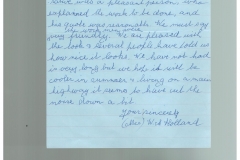 same was a pleasant person who
explained the work to be done, and
his quote was reasonable. We must say
his work men were
very friendly. We are pleased with
the look & several people have told us
how nice it looks. We have not had
in very long but we hope it will be
cooler in summer & living on a main
highway it seems to have cut the
noise down a bit.
Yours sincerely
Holland